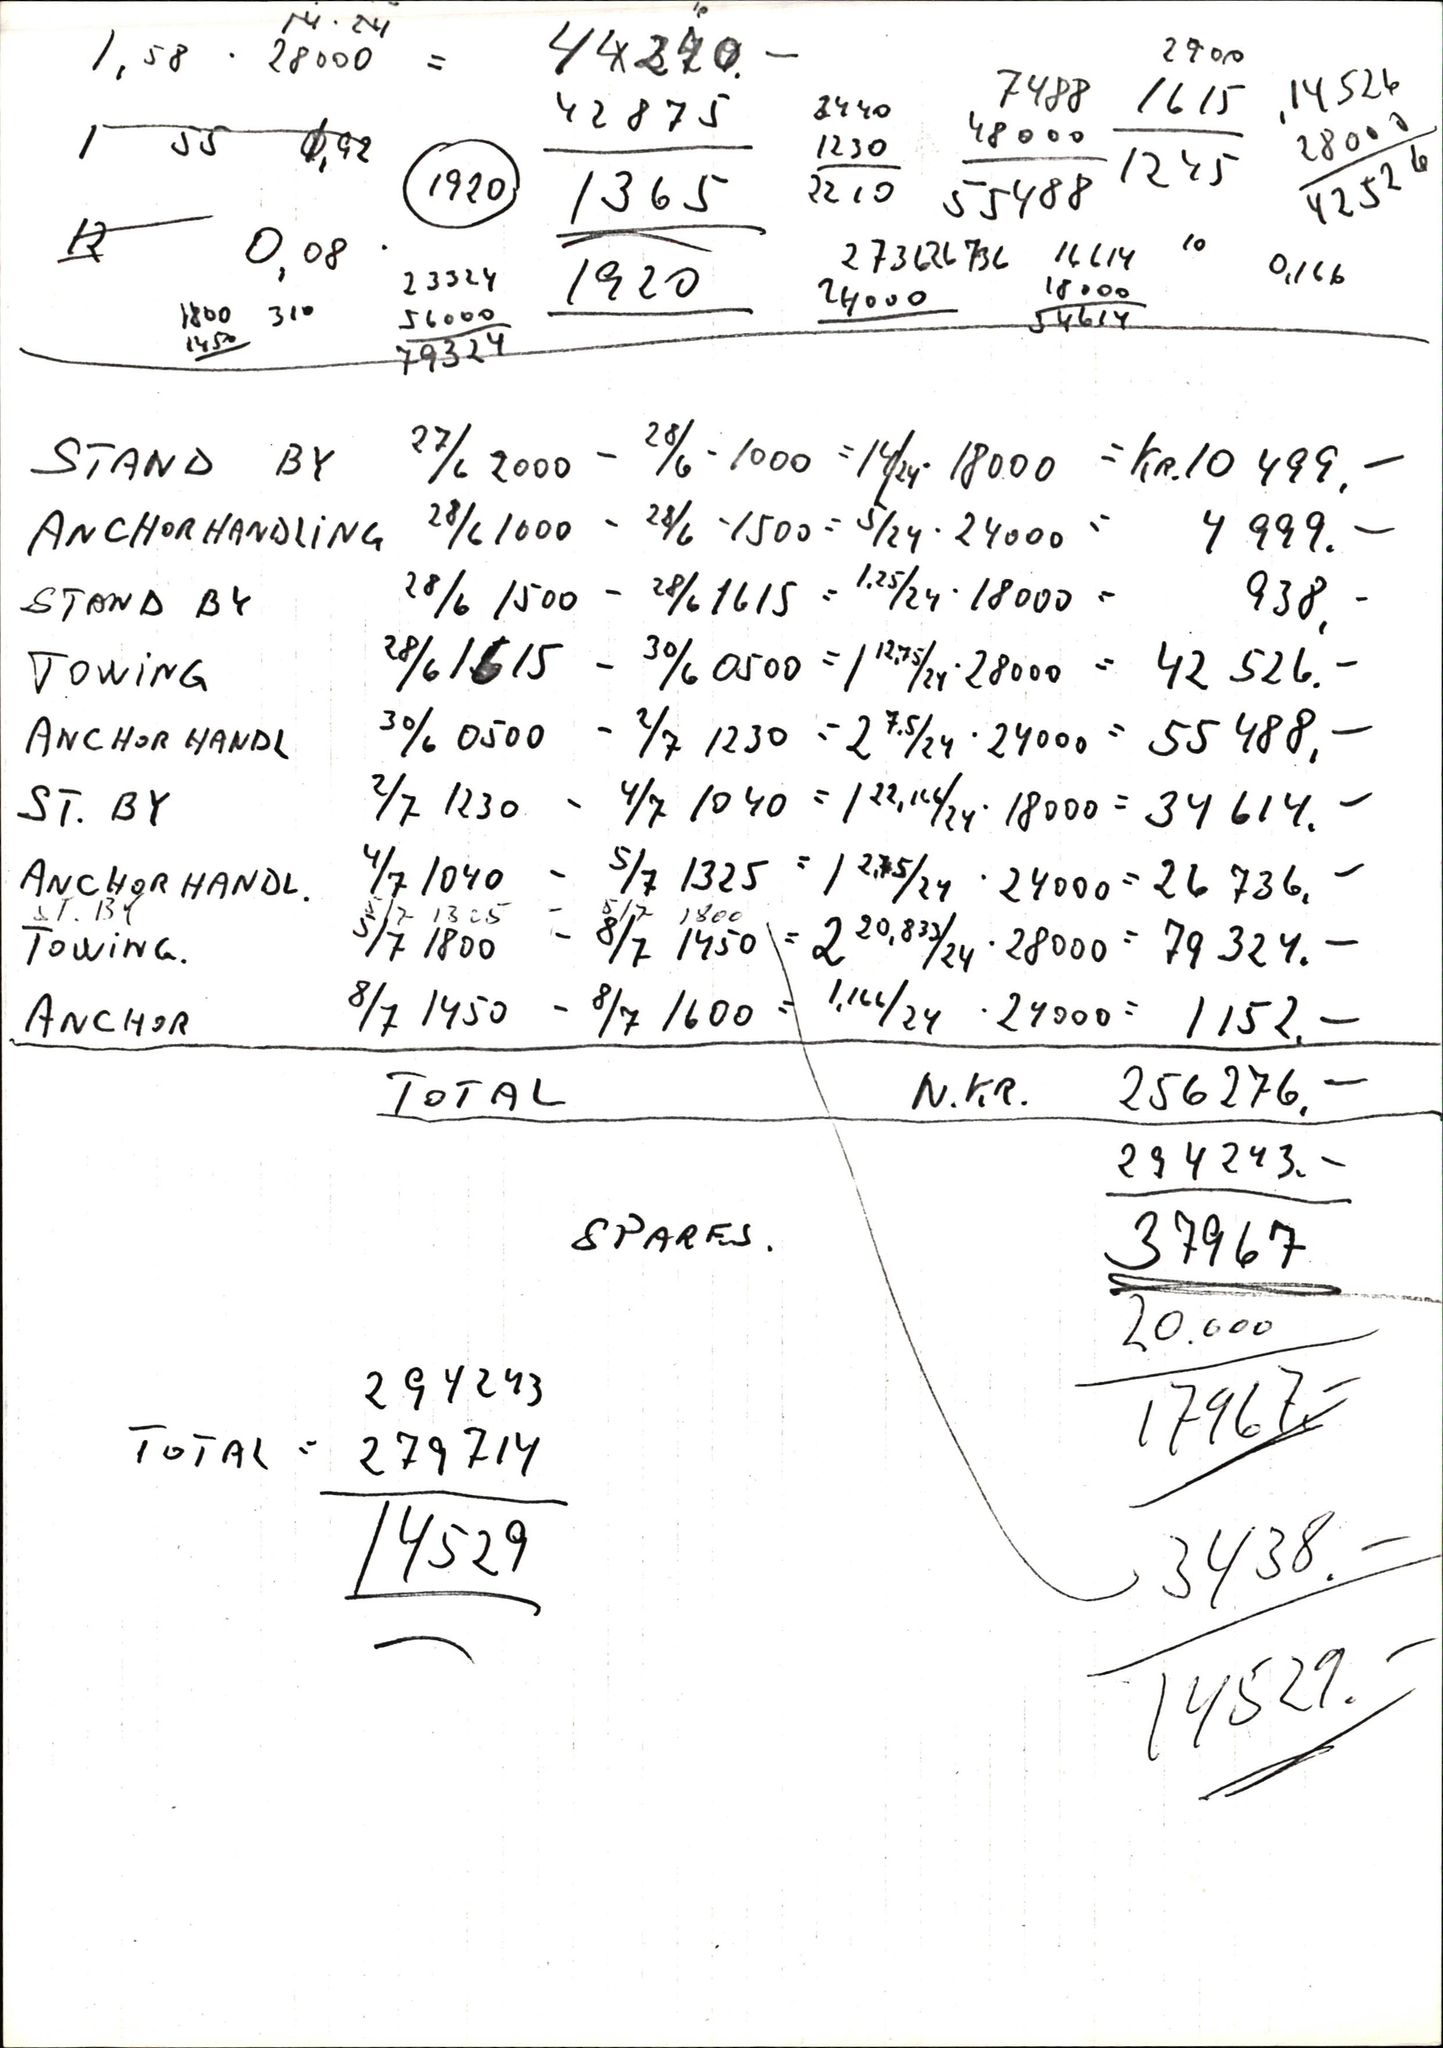 14 · 24
1,58 · 28000 = 44240.—
42875
1365
1920
1 55 0,92
1920
12 0,08 ·
1800 310
1450
23324
56000
79324
3440
1230
2210
7488
48000
55488
2400
1615
1245
14526
28000
42526
2736 26736
24000
16614
18000
34614
10
0,166
STAND BY 27/6 2000 — 28/6 - 1000 = 14/24 · 18000 = KR. 10 499,—
ANCHORHANDLING 28/6 1000 — 28/6 - 1500 = 5/24 · 24000 = 4 999.—
STAND BY 28/6 1500 — 28/6 1615 = 1.25/24 · 18000 = 938,-
TOWING 28/6 1615 — 30/6 0500 = 1 12,75/24 · 28000 = 42 526.—
ANCHOR HANDL 30/6 0500 — 2/7 1230 = 2 7.5/24 · 24000 = 55 488,—
ST. BY 2/7 1230 — 4/7 1040 = 1 22,166/24 · 18000 = 34 614.—
ANCHOR HANDL. 4/7 1040 — 5/7 1325 = 1 2,75/24 · 24000 = 26 736,—
ST. BY 5/7 1325 — 5/7 1800
TOWING. 5/7 1800 — 8/7 1450 = 2 20,833/24 · 28000 = 79 324.—
ANCHOR 8/7 1450 — 8/7 1600 = 1,166/24 · 24000 = 1 152.—
TOTAL N.KR. 256276,—
294243.—
SPARES. 37967
20.000
17967.=
294243
TOTAL = 279714
14529
3438.—
14529.—